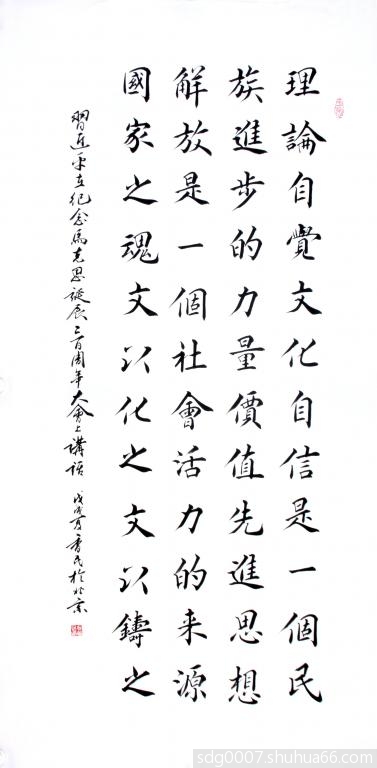 理論自覺文化自信是一個民
族進步的力量價值先進思想
解放是一個社會活力的来源
國家之魂文以化之文以鑄之
習近平在紀念馬克思誕辰二百周年大會上講話 戊戌夏民於北京
sdg0007.shuhua66.com